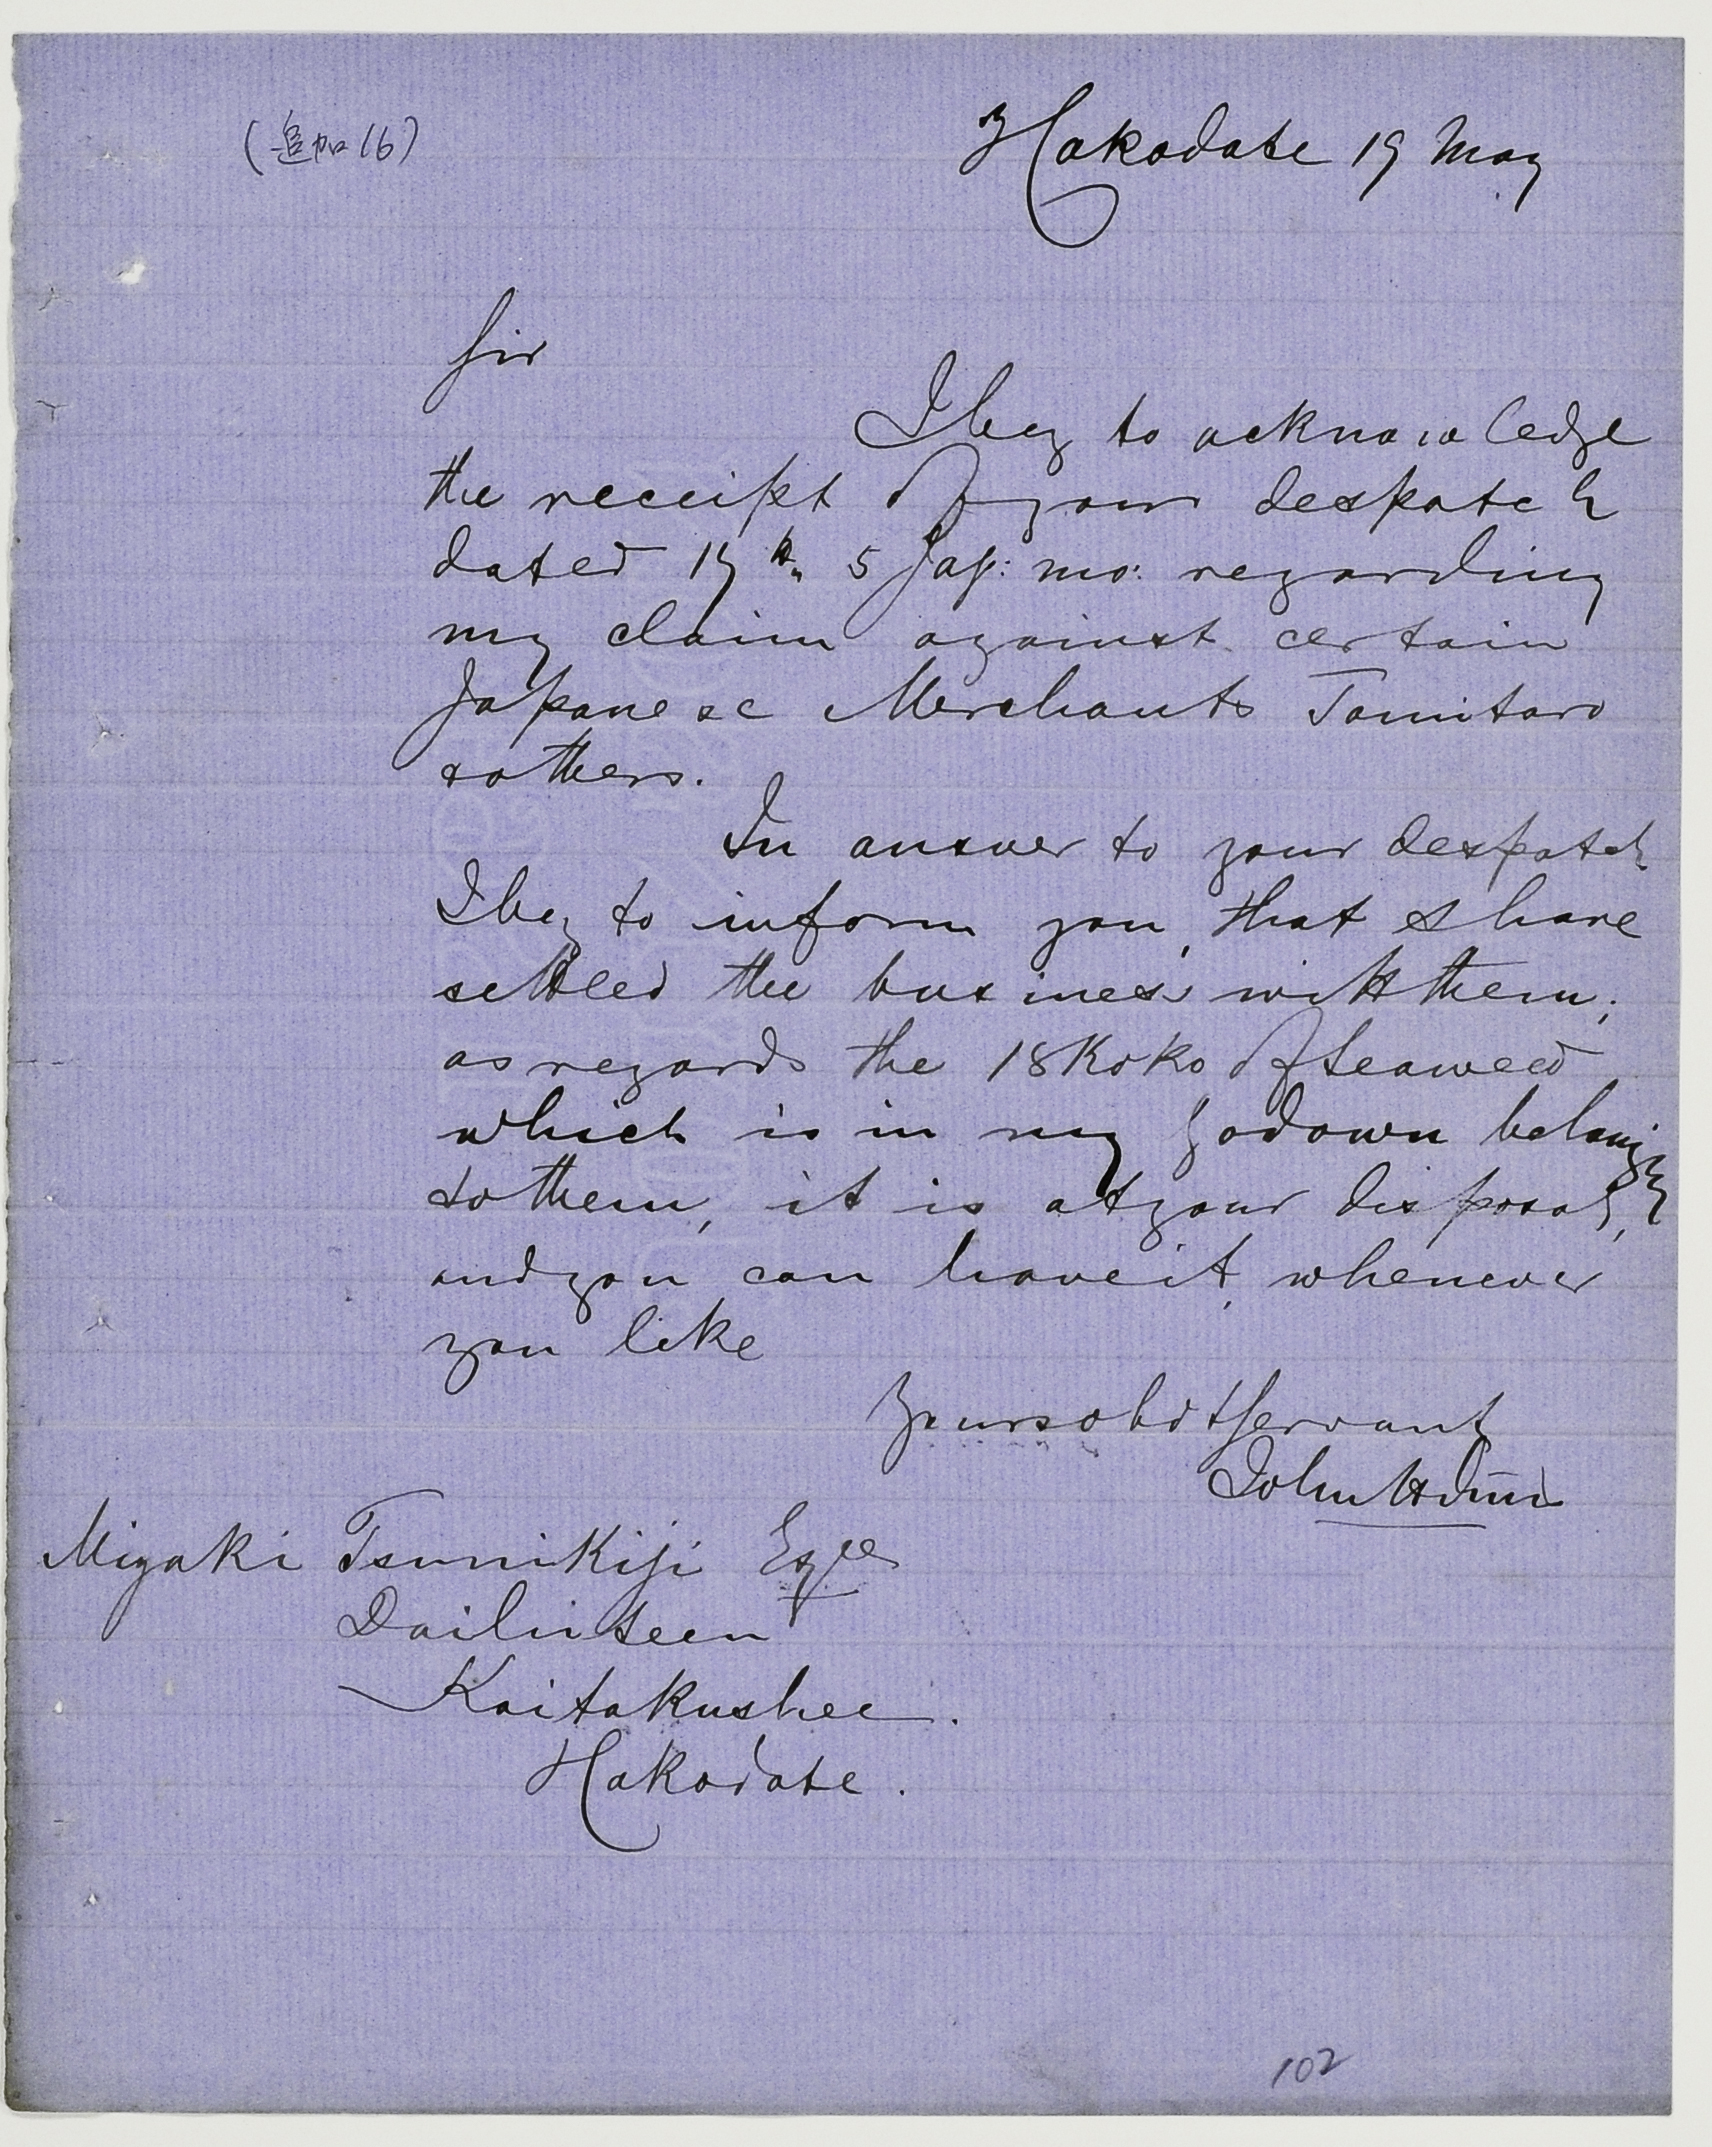 (追加16)
Hakodate 19 May
Sir
I beg to acknowledge
the receipt of your despatch
dated 19th 5 Jap: mo: regarding
my claim against certain
Japanese Merchants Tomitaro
& others.
In answer to your despatch
I beg to inform you, that I have
settled the business with them;
as regards the 18 Koko of seaweed
which is in my Godown belonging
to them, it is at your disposal,
and you can have it, whenever
you like
Yours obdt Servant
John
Miyaki Tsunikiji Esqre
Kaitakushee.
Hakodate.
102